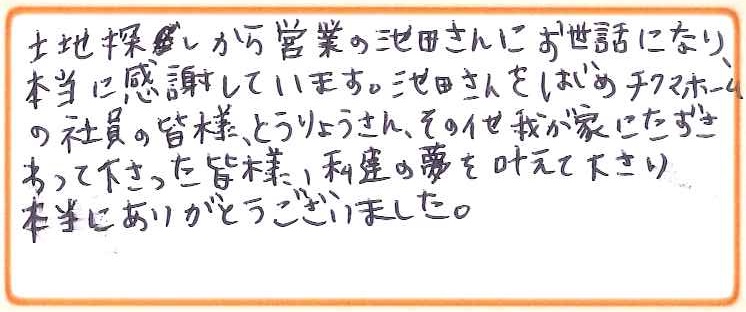 土地探しから営業の池田さんにお世話になり、
本当に感謝しています。池田さんをはじめチクマホーム
の社員の皆様、とうりょうさん、その他我が家にたずさ
わって下さった皆様、私達の夢を叶えて下さり
本当にありがとうございました。